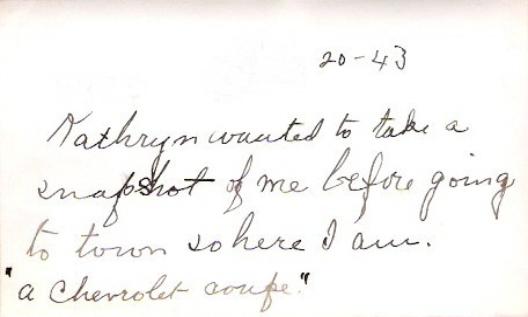 20-43
Kathryn wanted to take a
snapshot of me before going
to town so here I am.
"a Chevrolet coupe."